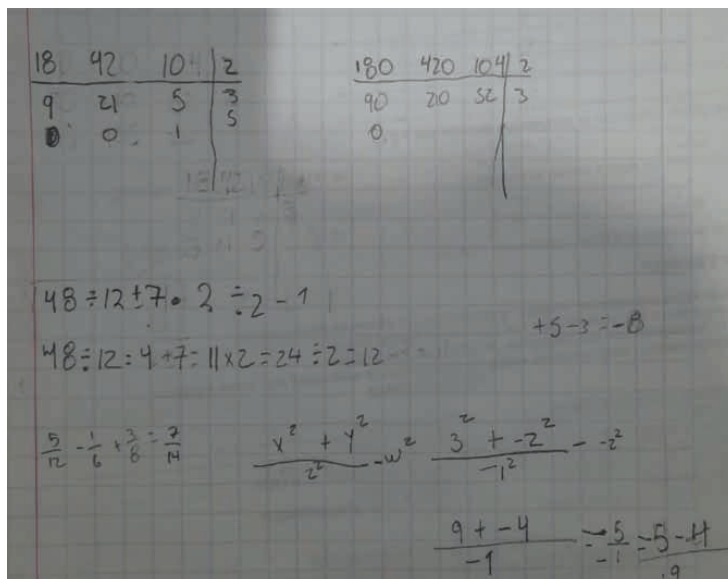 18 42 10 2
9 21 5 3
0 0 1 5
180 420 104 2
90 210 52 3
0
48 ÷ 12 + 7 • 2 ÷ 2 - 1
48 ÷ 12 = 4 + 7 = 11 x 2 = 24 ÷ 2 = 12
+5 - 3 = -8
5/12 - 1/6 + 3/8 = 7/14
x² + y² / z² - w²
3² + -2² / -1² - -2²
9 + -4 / -1 = -5/-1 = -5 - 4